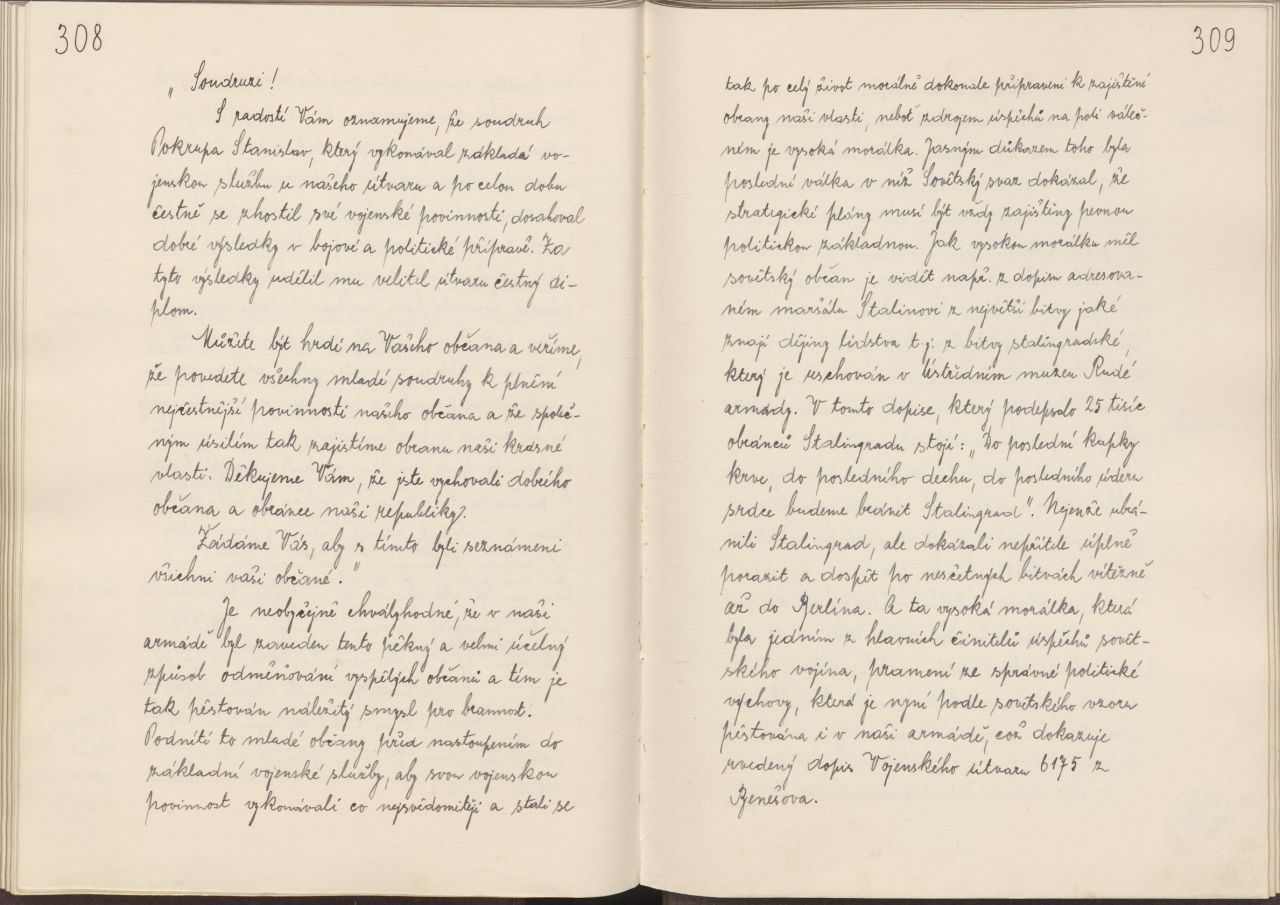 308
„Soudruzi!
S radostí Vám oznamujeme, že soudruh
Pokrupa Stanislav, který vykonával základní vo-
jenskou službu u našeho útvaru a po celou dobu
čestně se zhostil své vojenské povinnosti, dosahoval
dobré výsledky v bojové a politické přípravě. Za
tyto výsledky udělil mu velitel útvaru čestný di-
plom.
Můžete být hrdi na Vašeho občana a veříme,
že povedete všechny mladé soudruhy k plnění
nejčestnější povinnosti našeho občana a že společ-
ným úsilím tak zajistíme obranu naši krásné
vlasti. Děkujeme Vám, že jste vychovali dobrého
občana a obránce naši republiky.
Žádáme Vás, aby s tímto byli seznámeni
všichni vaši občané."
Je neobyčejně chvályhodné, že v naší
armádě byl zaveden tento pěkný a velmi účelný
způsob odměňování vyspělých občanů a tím je
tak pěstován náležitý smysl pro brannost.
Podnítí to mladé občany před nastoupením do
základní vojenské služby, aby svou vojenskou
povinnost vykonávali co nejsvědomitěji a stali se
309
tak po celý život morálně dokonale připraveni k zajištění
obrany naší vlasti, neboť zdrojem úspěchů na poli váleč-
ném je vysoká morálka. Jasným důkazem toho byla
poslední válka v níž Sovětský svaz dokázal, že
strategické plány musí být vždy zajištěny pevnou
politickou základnou. Jak vysokou morálku měl
sovětský občan je vidět např. z dopisu adresova-
ném maršálu Stalinovi z největší bitvy jaké
znají dějiny lidstva t.j. z bitvy stalingradské,
který je uschován v Ústředním muzeu Rudé
armády. V tomto dopise, který podepsalo 25 tisíc
obránců Stalingradu stojí: „Do poslední kapky
krve, do posledního dechu, do posledního úderu
srdce budeme bránit Stalingrad". Nejenže ubrá-
nili Stalingrad, ale dokázali nepřítele úplně
porazit a dospět po nesčetných bitvách vítězně
až do Berlína. A ta vysoká morálka, která
byla jedním z hlavních činitelů úspěchů sovět-
ského vojína, pramení ze správné politické
výchovy, která je nyní podle sovětského vzoru
pěstována i v naší armádě, což dokazuje
uvedený dopis Vojenského útvaru 6175 z
Benešova.